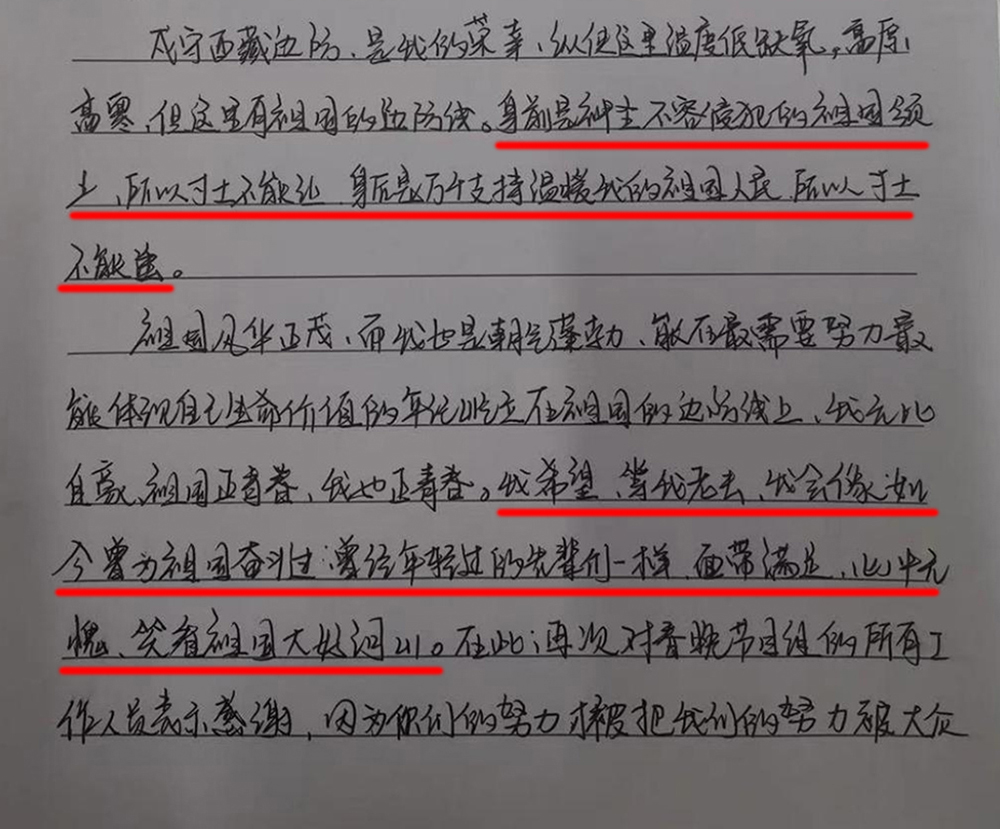 戍守西藏边防、是我的荣幸、纵使这里温度低缺氧,高原
高寒、但这里有祖国的边防线。身前是神圣不容侵犯的祖国领
土、所以寸土不能让 身后是万千支持温暖我的祖国人民、所以寸土
不能让。
祖国风华正茂、而我也是朝气蓬勃、能在最需要努力最
能体现自己生命价值的年纪屹立在祖国的边防线上、我无比
自豪、祖国正青春、我也正青春。我希望、等我老去、我会像如
今曾为祖国奋斗过、曾经年轻过的先辈们一样、面带满足、心中无
愧、笑看祖国大好河山。在此、再次对春晚节目组的所有工
作人员表示感谢,因为你们的努力才被把我们的努力被大众